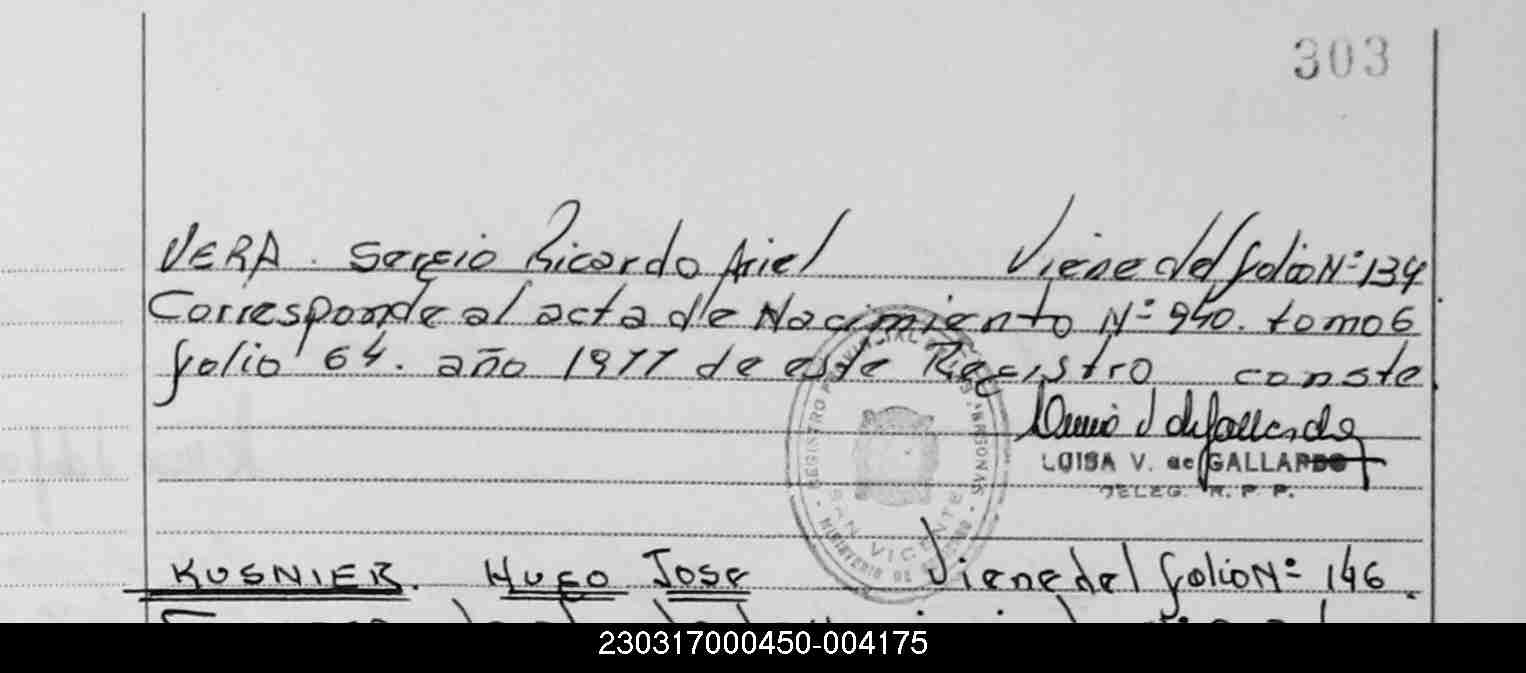 303
VERA. Sergio Ricardo Ariel Viene del folio Nº 134
Corresponde al acta de Nacimiento Nº 940. tomo 6
folio 64. año 1977 de este Registro conste.
LUISA V. de GALLARDO
DELEG. R. P. P.
REGISTRO PROVINCIAL DE LAS PERSONAS
SAN VICENTE
MINISTERIO DE GOBIERNO
KUSNIER. HUGO JOSE Viene del folio Nº 146.
230317000450-004175